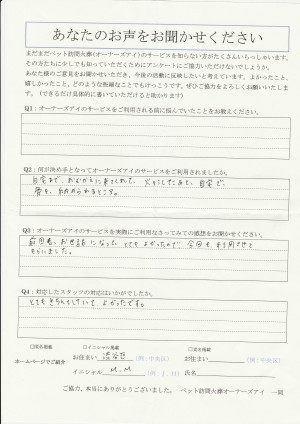 あなたのお声をお聞かせください
まだまだペット訪問火葬(オーナーズアイ)のサービスを知らない方がたくさんいらっしゃいます。
その方たちに少しでも知っていただくためにアンケートにご協力いただけないでしょうか。
あなた様のご意見をお聞かせいただき、今後の活動に反映したいと考えています。よかったこと、
嬉しかったこと、どのような些細なことでもけっこうです。ぜひご協力をよろしくお願いいたしま
す。(できるだけ具体的に書いていただけると助かります)
Q1:オーナーズアイのサービスをご利用される前に悩んでいたことをお教えください。
Q2:何が決め手となってオーナーズアイのサービスをご利用されましたか。
自宅まで、おむかえに来てくれて、火そうしたあと、自宅で、
骨を、納められるところ。
Q3:オーナーズアイのサービスを実際にご利用なさってみての感想をお聞かせください。
前回も、お世話になって、とてもよかったので、今回も、利用させて
もらいました。
Q4:対応したスタッフの対応はいかがでしたか。
とてもきちんとしていてよかったです。
ホームページでご紹介
□匿名掲載 □イニシャル掲載 □実名掲載
お住まい 渋谷区 (例:中央区) お住まい (例:中央区)
イニシャル M.M (例:I.H) 氏名
ご協力、本当にありがとうございました。 ペット訪問火葬オーナーズアイ 一同